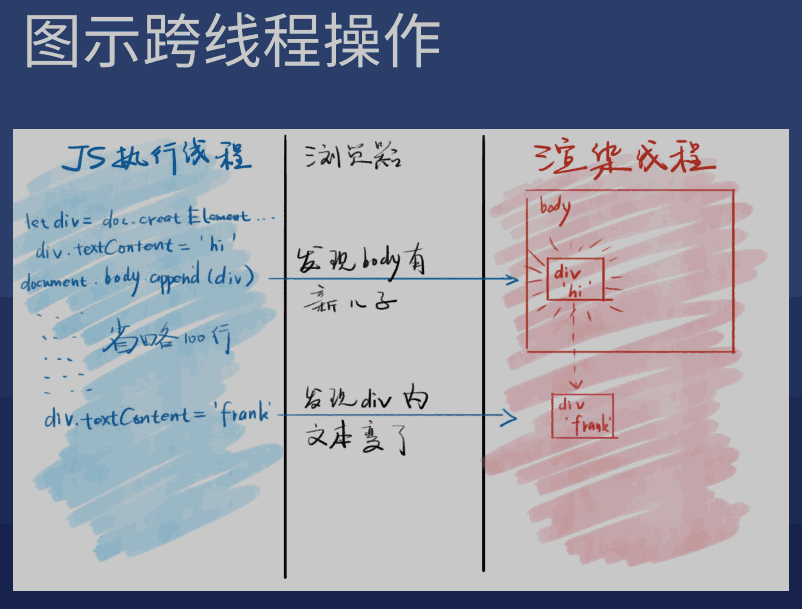 图示跨线程操作
JS执行线程
let div = doc.creat Element...
div.textContent = 'hi'
document.body.append(div)
省略100行
div.textContent = 'frank'
浏览器
发现body有
新儿子
发现div内
文本变了
渲染线程
body
div
'hi'
div
'frank'